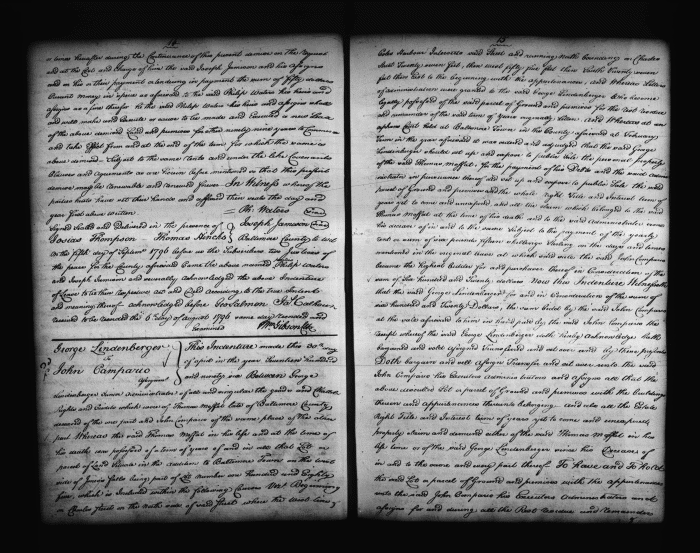 14
or times hereafter during the Continuance of this present demise in the Request
and at the Cost and Charge of him the said Joseph Jamison his assigns
and on his or their payment or tendering in payment the sum of fifty
Current money in specie as aforesaid to the said Philip Waters his heirs and
assigns as a fine therefor he the said Philip Waters his heirs and assigns shall
and will make and execute or cause to be made and executed a new Lease
of the above demised Lot and premises for other ninety nine years to Commence
and take Effect from and at the end of the term for which the same is
above demised Subject to the same Rents and under the like Covenants
Clauses and agreements as are herein before mentioned so that this present
demise may be renewable and renewed forever In Witness whereof the
parties hath have set their hands and affixed their seals the day and
year first above written
Phi Waters
Signed Sealed and Delivered in the presence of
Joseph Jamison
Josias Thompson Thomas Hincks
Baltimore County to wit
on the fifth day of Septemr 1796 before us the Subscribers two Justices of
the peace for the County aforesaid Came the above named Philip Waters
and Joseph Jamison and severally acknowledged the above Indenture
of Lease to be their respective act and Deed according to the true Intent
and meaning thereof acknowledged before Geo Salmon Jas Calhoun
received to be recorded the 6 day of August 1796 same day recorded and
Examined
Wm Gibson Clk
George Lindenberger
to
John Campario
This Indenture made this 30th day
of april in the year Seventeen hundred
and ninety six Between George
Lindenberger administrator of all and singular the goods and Chattels
Rights and Credits which were of Thomas Moffat late of Baltimore County
deceased of the one part and John Campario of the same place of the other
part Whereas the said Thomas Moffat in his life and at the time of
his death was possessed of a term of years of and in all that Lot or
parcel of Land situate in the addition to Baltimore Town on the west
side of Jones falls being part of Lot number one hundred and Eighty
five, which is Included within the following Courses Vizt Beginning
on Charles Street on the north side of said Street where the west line
15
Intersects said Street and running north bounding on Charles
Street Twenty seven feet then west fifty five feet then South Twenty seven
feet then East to the beginning with the appurtenances and Whereas Letters
of administration were granted to the said George Lindenberger who became
legally possessed of the said parcel of Ground and premises for the rest residue
and remainder of the said term of Years originally taken And Whereas at an
orphans Court held at Baltimore Town in the County aforesaid at February
Term in the year aforesaid it was ordered and adjudged that the said George
Lindenberger should set up and expose to public sale the personal property
of the said Thomas Moffat for the payment of his Debts and the said
administrator in pursuance thereof did set up and expose to public Sale the said
parcel of Ground and premises and the whole right Title and Interest term of
years yet to come and unexpired and all the term which belonged to the said
Thomas Moffat at the time of his death and to the said Administrator since
his decease of in and to the same Subject to the payment of the yearly
rent or sum of six pounds fifteen shillings Sterling on the days and times
mentioned in the original lease at which said sale the said John Campario
became the Highest Bidder for and purchaser thereof in Consideration of the
sum of Six hundred and Twenty dollars Now this Indenture Witnesseth
that the said George Lindenberger for and in Consideration of the sum of
six hundred and Twenty Dollars, the sum bid by the said John Campario
at the sale aforesaid to him in hand paid by the said John Campario the
receipt whereof the said George Lindenberger doth hereby acknowledge hath
bargained and sold assigned Transferred and set over and by these presents
Doth bargain and sell assign Transfer and set over unto the said
John Campario his Executors administrators and assigns all that the
above recited Lot or parcel of Ground and premises with the buildings
thereon and appurtenances thereunto belonging and also all the Estate
Right Title and Interest term of years yet to come and unexpired,
property claim and demand either of the said Thomas Moffat in his
life time or of the said George Lindenberger since his Decease of
in and to the same and every part thereof To Have and To Hold
the said Lot or parcel of Ground and premises with the appurtenances
unto the said John Campario his Executors administrators and
assigns for and during all the Rest residue and remainder